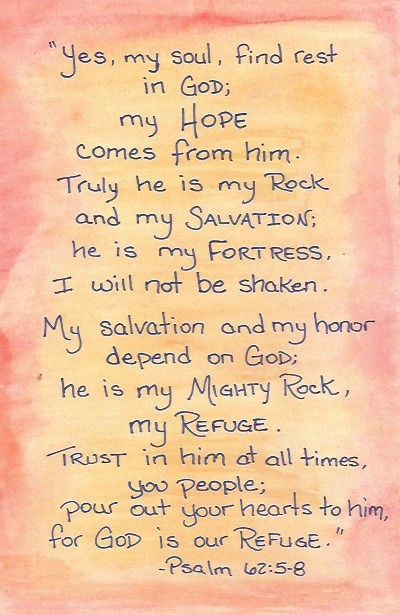 "Yes, my soul, find rest
in GOD;
my HOPE
comes from him.
Truly he is my Rock
and my SALVATION;
he is my FORTRESS,
I will not be shaken.
My salvation and my honor
depend on GOD;
he is my MIGHTY ROCK,
my REFUGE.
TRUST in him at all times,
you people;
pour out your hearts to him,
for GOD is our REFUGE."
-Psalm 62:5-8